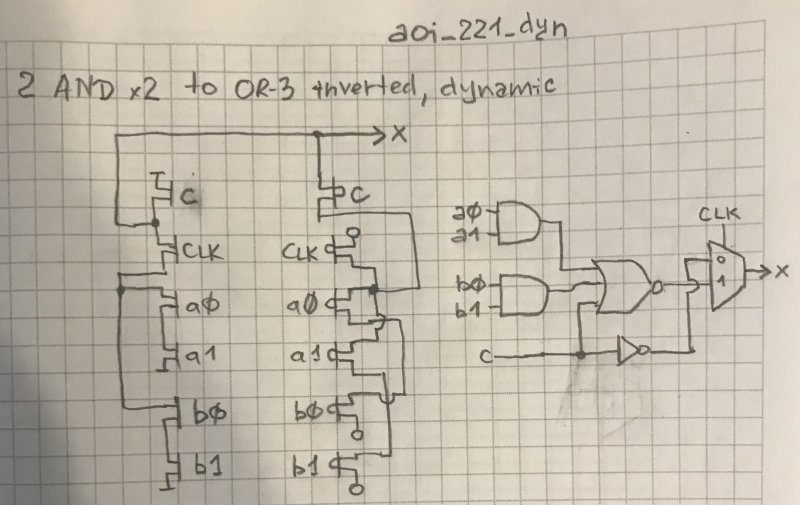 aoi_221_dyn
2 AND x2 to OR-3 inverted, dynamic
X
C
C
CLK
CLK
a0
a0
a1
a1
b0
b0
b1
b1
a0
a1
b0
b1
C
CLK
0
1
X